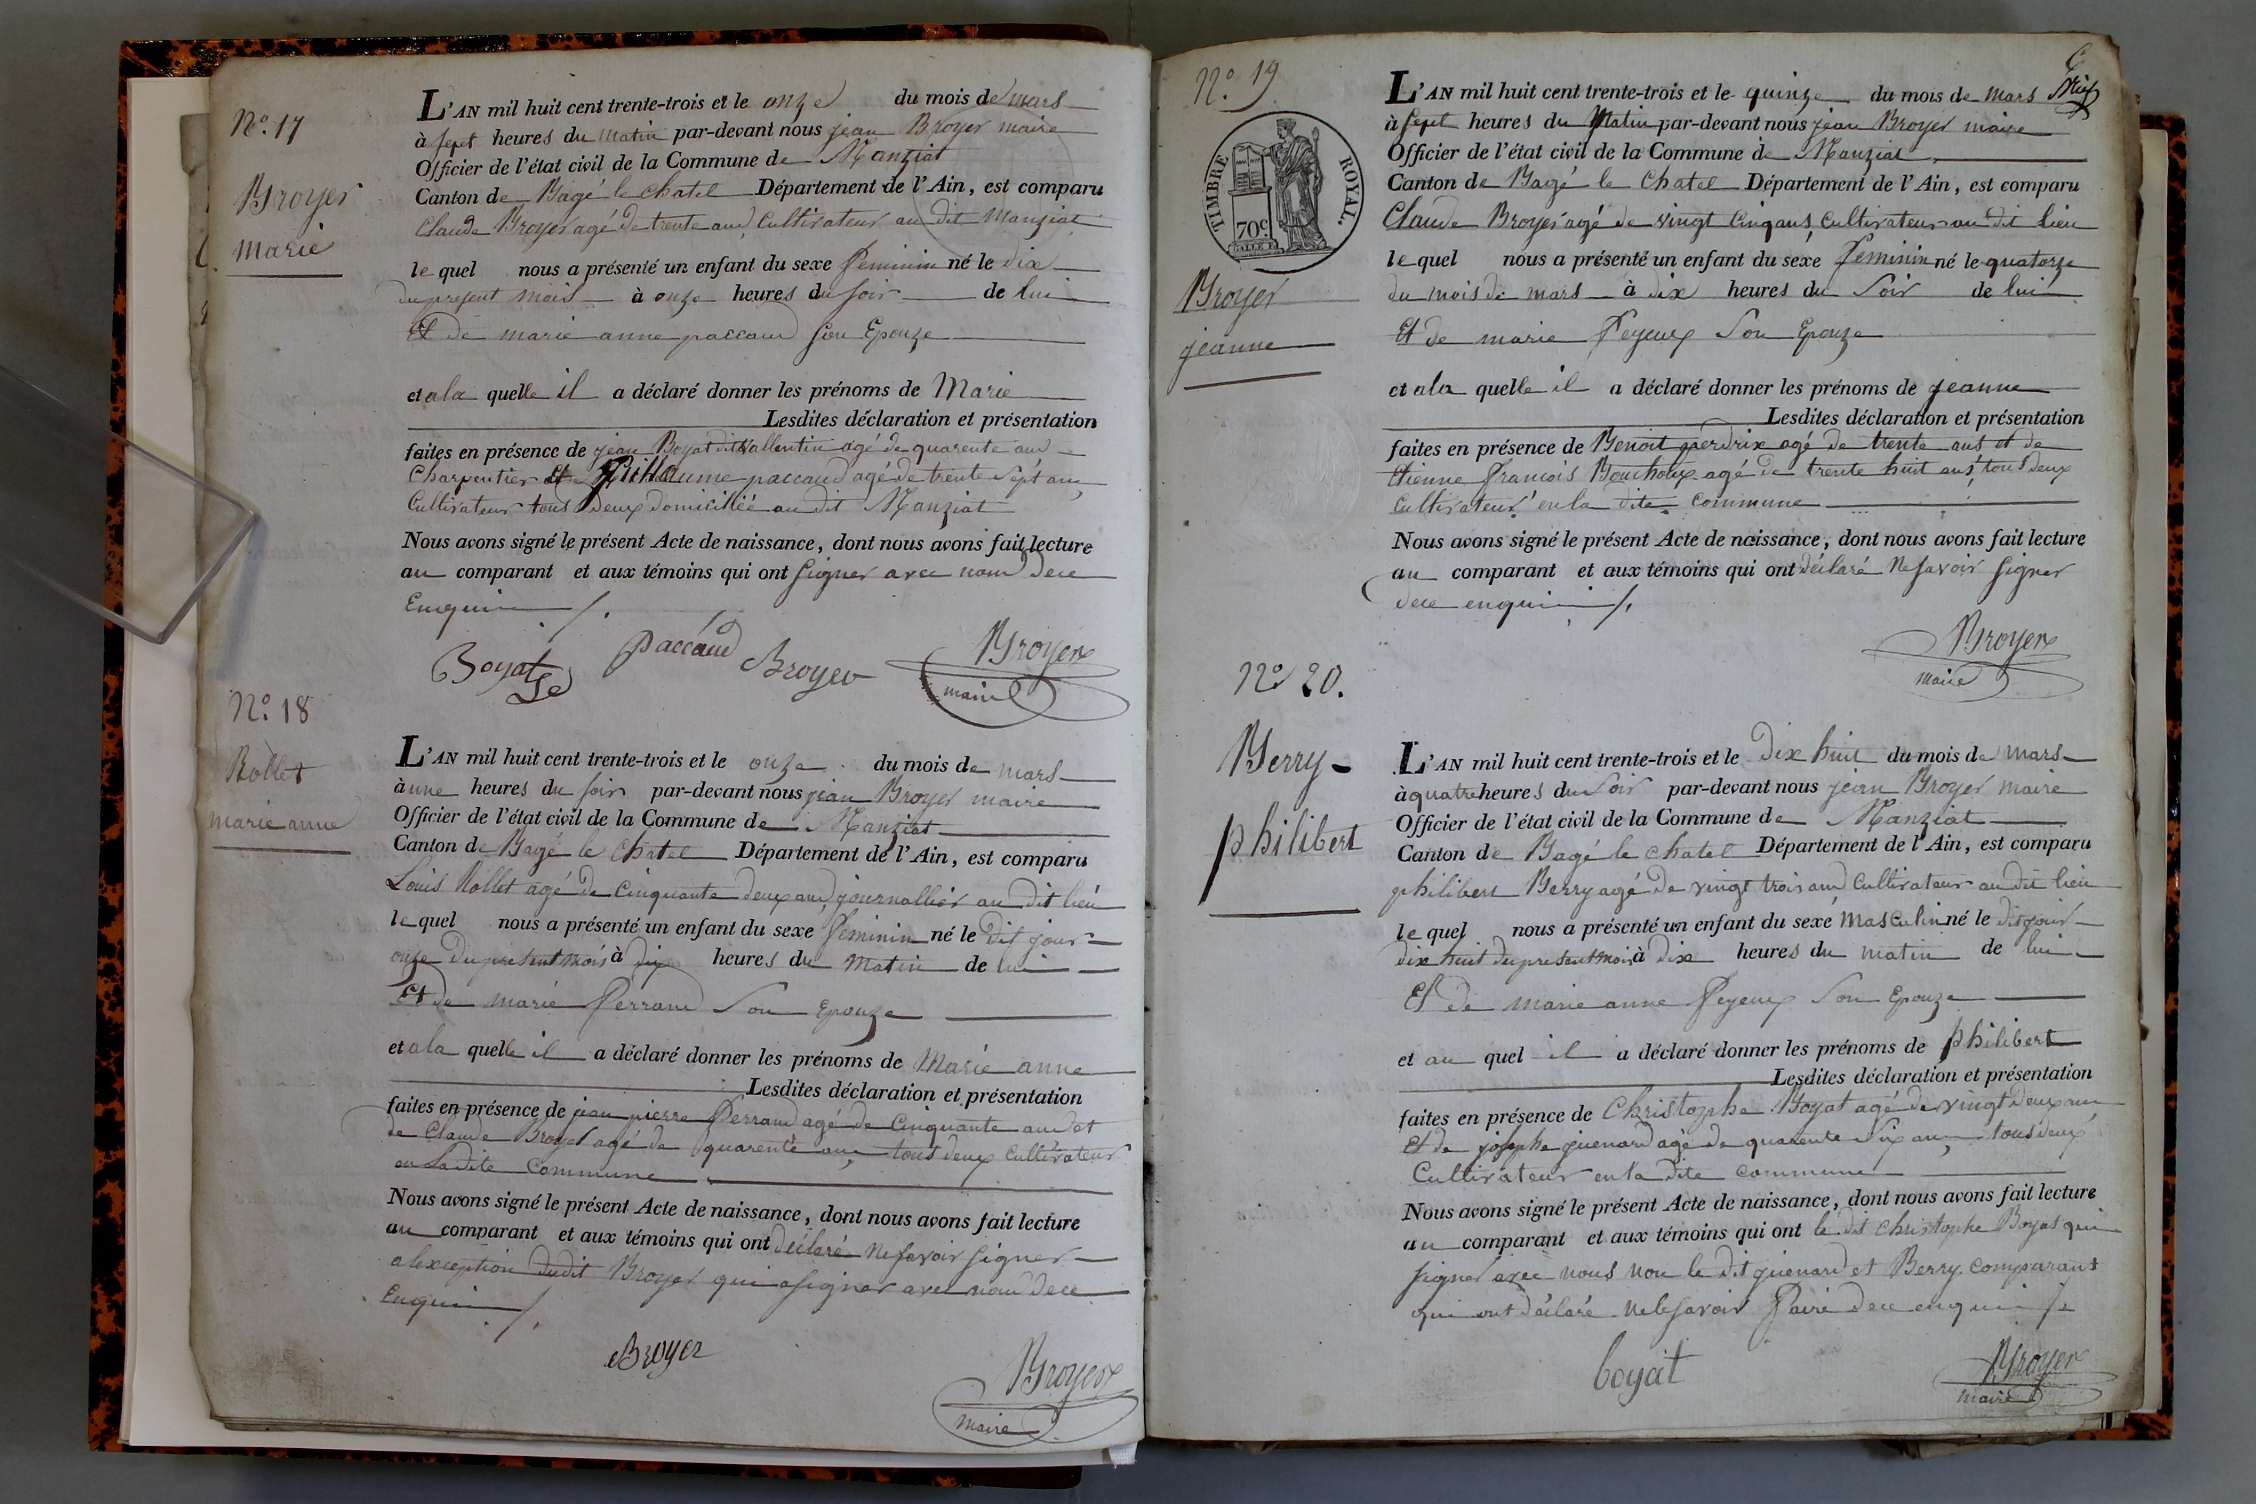 N.º 17
Broyer
marie
L'AN mil huit cent trente-trois et le onze du mois de mars
à sept heures du matin par-devant nous jean Broyer maire
Officier de l'état civil de la Commune de Manziat
Canton de Bagé le chatel Département de l'Ain, est comparu
Claude Broyer agé de trente ans, Cultivateur au dit Manziat
le quel nous a présenté un enfant du sexe feminin né le dix
du present mois à onze heures du soir de lui
Et de marie anne paccaud son Epouze
et a la quelle il a déclaré donner les prénoms de Marie
Lesdites déclaration et présentation
faites en présence de jean Boyat dit Vallentin agé de quarente ans
Charpentier et Guillaume paccaud agé de trente sept ans
Cultivateur tous deux domicillié au dit Manziat
Nous avons signé le présent Acte de naissance, dont nous avons fait lecture
au comparant et aux témoins qui ont signer avec nous dece
Enquis /.
Boyat paccaud Broyer Broyer
maire
N.º 18
Rollet
marie anne
L'AN mil huit cent trente-trois et le onze du mois de mars
à une heures du soir par-devant nous jean Broyer maire
Officier de l'état civil de la Commune de Manziat
Canton de Bagé le chatel Département de l'Ain, est comparu
Louis Rollet agé de Cinquante deux ans, journallier au dit lieu
le quel nous a présenté un enfant du sexe feminin né le dit jour
onze du present mois à dix heures du matin de lui
Et de marie Perraud Son Epouze
et a la quelle il a déclaré donner les prénoms de Marie anne
Lesdites déclaration et présentation
faites en présence de jean pierre Perraud agé de Cinquante ans et
de Claude Broyer agé de quarente ans, tous deux Cultivateur
en Ladite Commune
Nous avons signé le présent Acte de naissance, dont nous avons fait lecture
au comparant et aux témoins qui ont déclaré ne savoir signer
alexception dudit Broyer qui a signer avec nous dece
enquis /.
Broyer Broyer
maire
N.º 19
six
TIMBRE ROYAL
70c
Broyer
jeanne
L'AN mil huit cent trente-trois et le quinze du mois de mars
à sept heures du Matin par-devant nous jean Broyer maire
Officier de l'état civil de la Commune de Manziat
Canton de Bagé le Chatel Département de l'Ain, est comparu
Claude Broyer agé de vingt Cinq ans, Cultivateur au dit lieu
le quel nous a présenté un enfant du sexe Feminin né le quatorze
du mois de mars à dix heures du Soir de lui
Et de marie Feyeux Son Epouze
et a la quelle il a déclaré donner les prénoms de jeanne
Lesdites déclaration et présentation
faites en présence de Benoit perdrix agé de trente ans et de
Etienne francois Bouchoux agé de trente huit ans, tous deux
Cultivateur en la dite commune
Nous avons signé le présent Acte de naissance, dont nous avons fait lecture
au comparant et aux témoins qui ont déclaré ne savoir signer
dece enquis /.
Broyer
maire
N.º 20.
Berry
philibert
L'AN mil huit cent trente-trois et le Dix huit du mois de mars
à quatre heures du Soir par-devant nous jean Broyer maire
Officier de l'état civil de la Commune de Manziat
Canton de Bagé le chatel Département de l'Ain, est comparu
philibert Berry agé de vingt trois ans Cultivateur au dit lieu
le quel nous a présenté un enfant du sexe Masculin né le dit jour
dix huit du present mois à dix heures du matin de lui
Et de marie anne Feyeux Son Epouze
et au quel il a déclaré donner les prénoms de philibert
Lesdites déclaration et présentation
faites en présence de Christophe Boyat agé de vingt deux ans
Et de josephe guenard agé de quarente six ans, tous deux
Cultivateur en la dite commune
Nous avons signé le présent Acte de naissance, dont nous avons fait lecture
au comparant et aux témoins qui ont le dit christophe Boyat qui
signer avec nous non le dit guenard et Berry comparant
qui ont déclaré ne le savoir faire dece enquis /.
boyat Broyer
maire